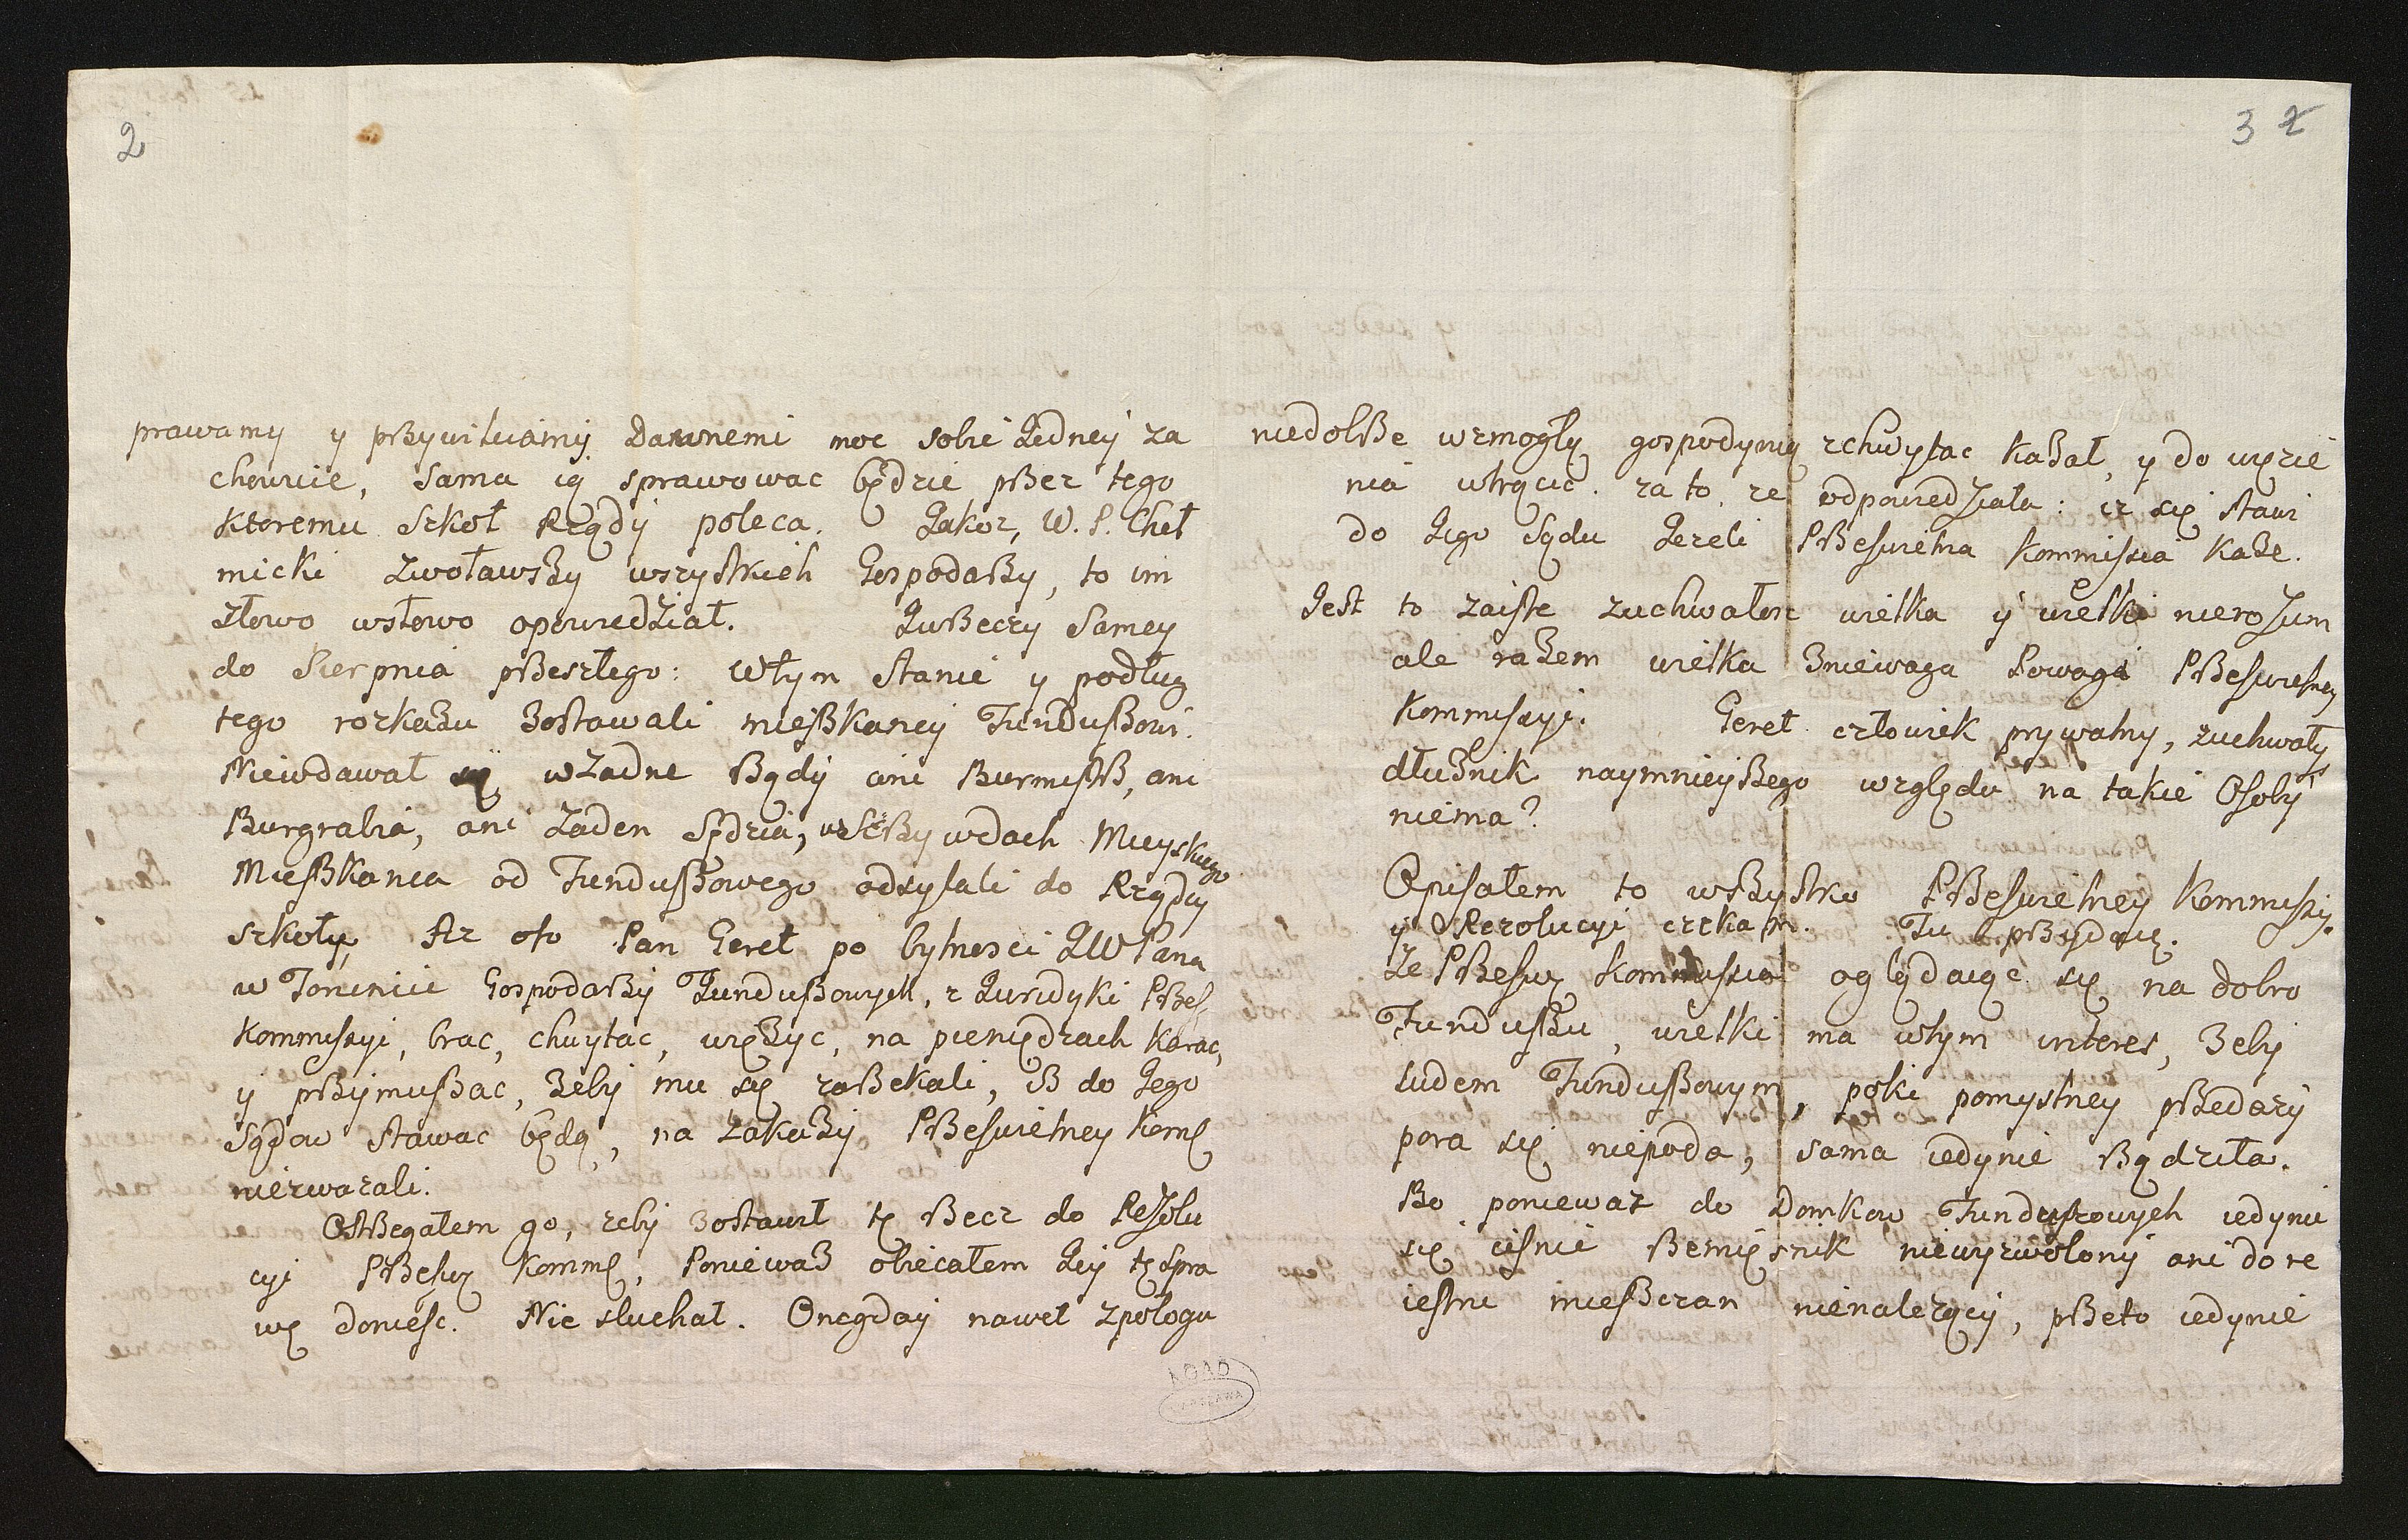 2
prawamy y prßywiluiamy Dawnemi moc sobie Jedney za
chowuie, Sama ią sprawowac będzie pßez tego
Ktoremu Szkoł Rządy poleca. Jakoz, W. P. Cheł
micki Zwoławszy wszystkich Gospodaßy, to im
słowo wsłowo opowiedział. Jußeczy Samey
do Sierpnia pßeszłego: Wtym Stanie y podług
tego rozkazu Zostawali mießkancy Fundußowi.
Niewdawał się wżadne Rządy ani Burmistß, ani
Burgrabia, ani żaden Sędzia, Mieyskiego
Mießkanca od Fundußowego odsyłali do Rządcy
szkoły, Az oto Pan Geret po bytnosci JWPana
w Toruniu Gospodaßy Fundußowych, z Jurydyki Pßes
Kommissyi, brac, chwytac, więzyc, na pieniędzach Karac,
y pßymußac, Zeby mu się zaßekali, iß do Jego
Sądow Stawac będą, na Zakazy Pßeswietney Komß
niezwazali.
Ostßegałem go, zeby Zostawił tę Recz do Rezolu
cyi Pßesw Kommß, Poniewaz obiecałem Jey tę Spra
wę doniesc. Nie słuchał. Onegday nawet zpołogu
3 2
niedobße wzmogłę gospodynię zchwytac kazał, y do więzie
nia wtrącic. za to, ze odpowiedziała: iz się stawi
do Jego Sądu Jezeli Pßeswietna Kommissia Kaze.
Jest to zaiste zuchwałosc wielka y wielki nierozum
ale razem wielka Zniewaga Powagi Pßeswietney
Kommissyi. Geret człowiek prywatny, zuchwały
dłuznik naymnieyßego względu na takie Osoby
niema?
Opisałem to wßystko Pßeswietney Kommissyi
y Rezolucyi czekam. Tu pßydaię.
Ze Pßesw Kommissia oglądaiąc się na dobro
Fundußu, wielki ma wtym interes, Zeby
ludem Fundußowym, poki pomyslney pßedazy
pora się niepoda, sama iedynie Rządziła.
Bo poniewaz do Domkow Fundußowych iedynie
się cisnie Remięsnik niewyzwolony ani do re
iestru mießczan nienalezący, pßeto iedynie
AGAD
WARSZAWA